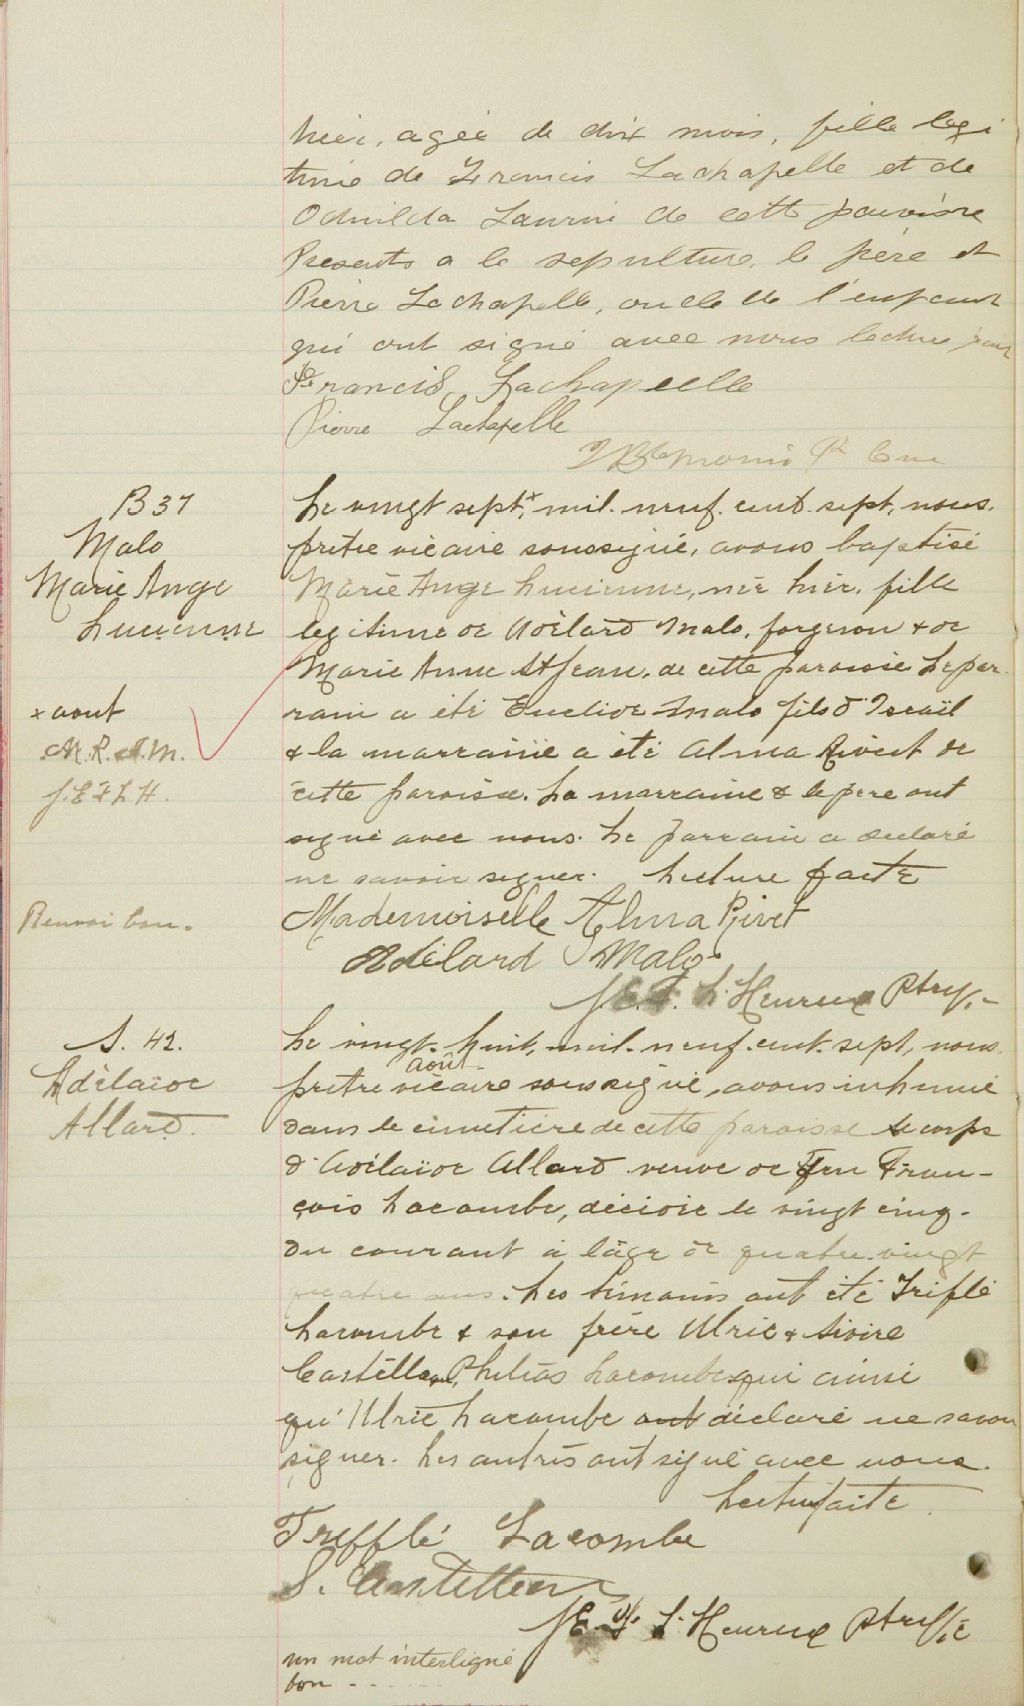 hier, agée de dix mois, fille legi
time de Francis Lachapelle et de
Odmilda Laurin de cette paroisse
Presents a la sepulture, le père et
Pierre Lachapelle, oncle de l'enfant
qui ont signé avec nous lecture faite
Francis Lachapelle
Pierre Lachapelle
Ptre Curé
B 37
Malo
Marie Ange
Lucienne
x aout
A. R. A. M.
J. E. F. L H.
Renvoi bon.
Le vingt sept,x mil. neuf. cent. sept, nous.
prêtre vicaire soussigné, avons baptisé
Marie Ange Lucienne, née hier, fille
legitime de Adélard Malo, forgeron & de
Marie Anne St Jean, de cette paroisse. Le par-
rain a été Euclide Malo fils d'Israël
& la marraine a été Alma Rivest de
cette paroisse. La marraine & le père ont
signé avec nous. Le parrain a déclaré
ne savoir signer. Lecture faite
Mademoiselle Alma Rivet
Adélard Malo
J. E. F. L'Heureux Ptre V.
S. 42.
Adélaïde
Allard.
Le vingt-huit, mil. neuf. cent. sept, nous.
août
prêtre vicaire soussigné, avons inhumé
dans le cimetière de cette paroisse le corps
d'Adélaïde Allard veuve de feu Fran-
çois Lacombe, décédée le vingt cinq.
du courant à l'âge de quatre-vingt
quatre ans. Les témoins ont été Trifflé
Lacombe & son frère Ulric &
Castellan, Philias Lacombe qui ainsi
qu'Ulric Lacombe ont déclaré ne savoir
signer. Les autres ont signé avec nous.
Lecture faite
Trefflé Lacombe
S. Castellan
J. E. F. L'Heureux Ptre Vic
un mot interligné
bon - - - - -